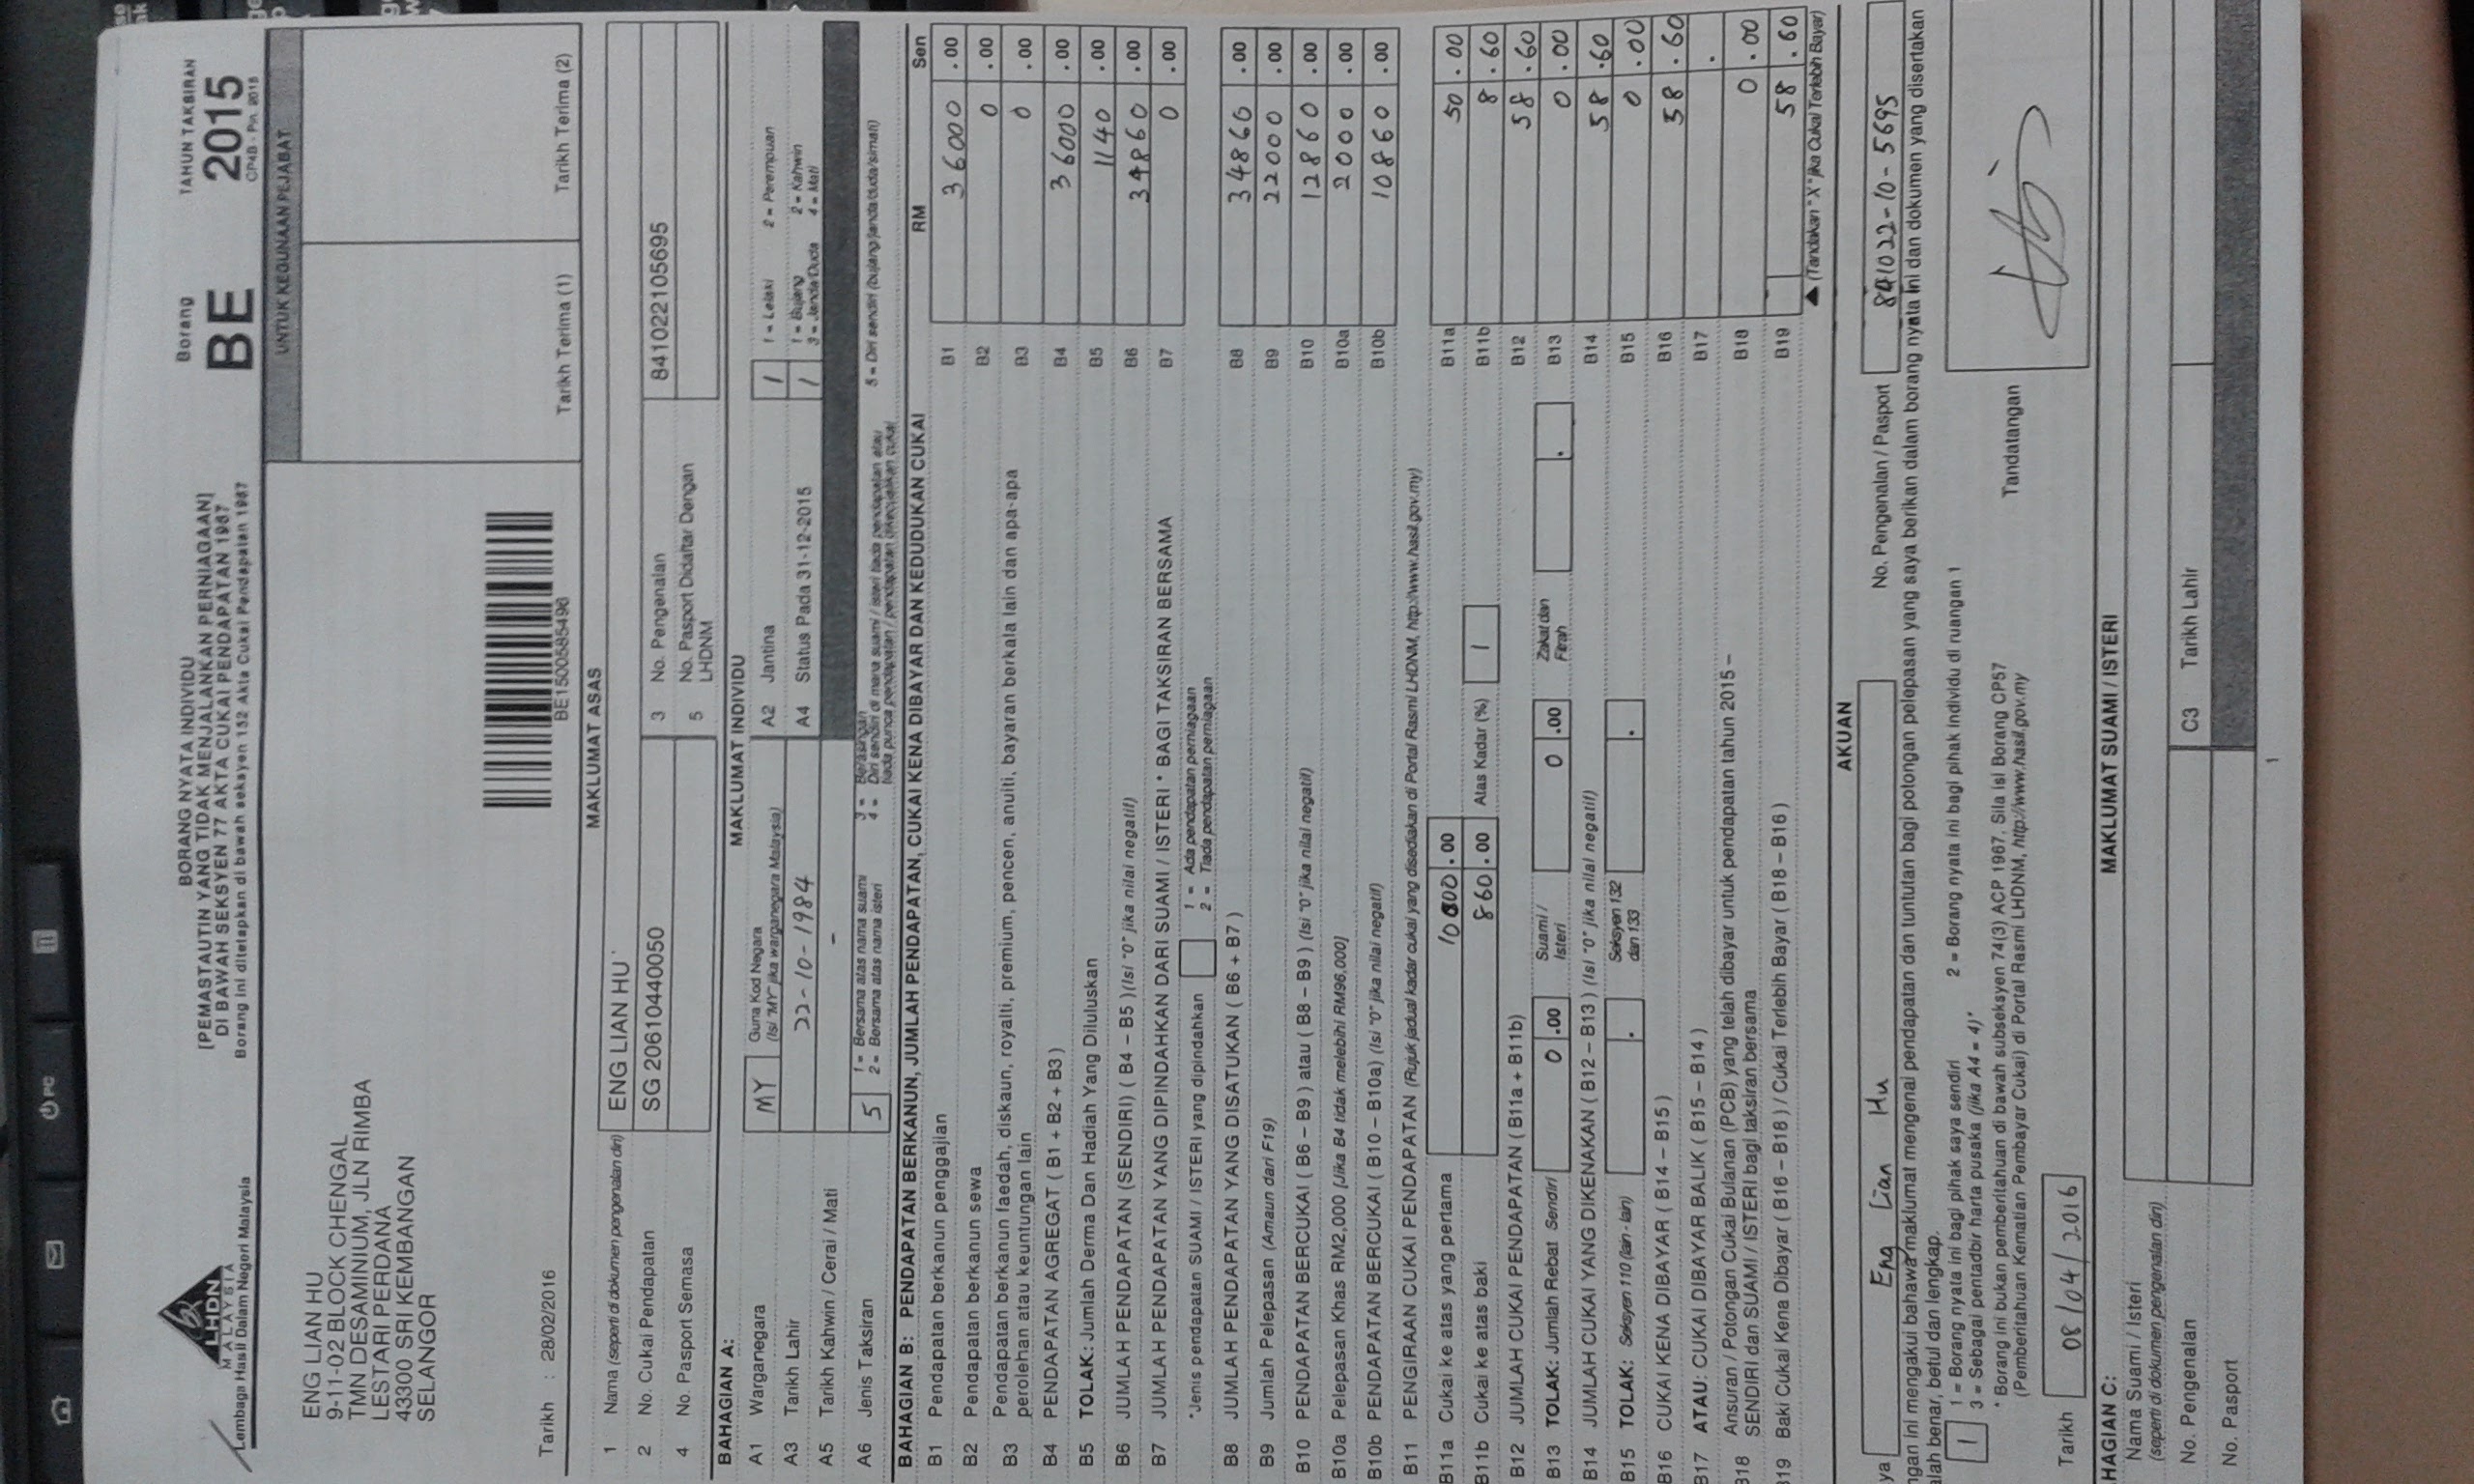 PC
LHDN
MALAYSIA
Lembaga Hasil Dalam Negeri Malaysia
BORANG NYATA INDIVIDU
[PEMASTAUTIN YANG TIDAK MENJALANKAN PERNIAGAAN]
DI BAWAH SEKSYEN 77 AKTA CUKAI PENDAPATAN 1967
Borang ini ditetapkan di bawah seksyen 152 Akta Cukai Pendapatan 1967
Borang
BE
TAHUN TAKSIRAN
2015
CP4B - Pin. 2015
UNTUK KEGUNAAN PEJABAT
ENG LIAN HU
9-11-02 BLOCK CHENGAL
TMN DESAMINIUM, JLN RIMBA
LESTARI PERDANA
43300 SRI KEMBANGAN
SELANGOR
Tarikh : 28/02/2016
BE1500585496
Tarikh Terima (1) Tarikh Terima (2)
MAKLUMAT ASAS
1 Nama (seperti di dokumen pengenalan diri) ENG LIAN HU
2 No. Cukai Pendapatan SG 20610440050 3 No. Pengenalan 841022105695
4 No. Pasport Semasa 5 No. Pasport Didaftar Dengan
LHDNM
BAHAGIAN A: MAKLUMAT INDIVIDU
A1 Warganegara MY Guna Kod Negara
(Isi "MY" jika warganegara Malaysia)
A2 Jantina 1 1 = Lelaki 2 = Perempuan
A3 Tarikh Lahir 22-10-1984 A4 Status Pada 31-12-2015 1 1 = Bujang 2 = Kahwin
3 = Janda/Duda 4 = Mati
A5 Tarikh Kahwin / Cerai / Mati -
A6 Jenis Taksiran 5 1 = Bersama atas nama suami 3 = Berasingan
2 = Bersama atas nama isteri 4 = Diri sendiri di mana suami / isteri tiada pendapatan atau
tiada punca pendapatan / pendapatan dikecualikan cukai
5 = Diri sendiri (bujang/janda/duda/simati)
BAHAGIAN B: PENDAPATAN BERKANUN, JUMLAH PENDAPATAN, CUKAI KENA DIBAYAR DAN KEDUDUKAN CUKAI RM Sen
B1 Pendapatan berkanun penggajian B1 36000 .00
B2 Pendapatan berkanun sewa B2 0 .00
B3 Pendapatan berkanun faedah, diskaun, royalti, premium, pencen, anuiti, bayaran berkala lain dan apa-apa
perolehan atau keuntungan lain B3 0 .00
B4 PENDAPATAN AGREGAT ( B1 + B2 + B3 ) B4 36000 .00
B5 TOLAK: Jumlah Derma Dan Hadiah Yang Diluluskan B5 1140 .00
B6 JUMLAH PENDAPATAN (SENDIRI) ( B4 – B5 )(Isi "0" jika nilai negatif) B6 34860 .00
B7 JUMLAH PENDAPATAN YANG DIPINDAHKAN DARI SUAMI / ISTERI * BAGI TAKSIRAN BERSAMA B7 0 .00
*Jenis pendapatan SUAMI / ISTERI yang dipindahkan 1 = Ada pendapatan perniagaan
2 = Tiada pendapatan perniagaan
B8 JUMLAH PENDAPATAN YANG DISATUKAN ( B6 + B7 ) B8 34860 .00
B9 Jumlah Pelepasan (Amaun dari F19) B9 22000 .00
B10 PENDAPATAN BERCUKAI ( B6 – B9 ) atau ( B8 – B9 ) (Isi "0" jika nilai negatif) B10 12860 .00
B10a Pelepasan Khas RM2,000 [Jika B4 tidak melebihi RM96,000] B10a 2000 .00
B10b PENDAPATAN BERCUKAI ( B10 – B10a) (Isi "0" jika nilai negatif) B10b 10860 .00
B11 PENGIRAAN CUKAI PENDAPATAN (Rujuk jadual kadar cukai yang disediakan di Portal Rasmi LHDNM, http://www.hasil.gov.my)
B11a Cukai ke atas yang pertama 10000 .00 B11a 50 .00
B11b Cukai ke atas baki 860 .00 Atas Kadar (%) 1 B11b 8 .60
B12 JUMLAH CUKAI PENDAPATAN ( B11a + B11b) B12 58 .60
B13 TOLAK: Jumlah Rebat Sendiri 0 .00 Suami /
Isteri 0 .00 Zakat dan
Fitrah . B13 0 .00
B14 JUMLAH CUKAI YANG DIKENAKAN ( B12 – B13 ) (Isi "0" jika nilai negatif) B14 58 .60
B15 TOLAK: Seksyen 110 (lain - lain) . Seksyen 132
dan 133 . B15 0 .00
B16 CUKAI KENA DIBAYAR ( B14 – B15 ) B16 58 .60
B17 ATAU: CUKAI DIBAYAR BALIK ( B15 – B14 ) B17 .
B18 Ansuran / Potongan Cukai Bulanan (PCB) yang telah dibayar untuk pendapatan tahun 2015 –
SENDIRI dan SUAMI / ISTERI bagi taksiran bersama B18 0 .00
B19 Baki Cukai Kena Dibayar ( B16 – B18 ) / Cukai Terlebih Bayar ( B18 – B16 ) B19 58 .60
(Tandakan "X" jika Cukai Terlebih Bayar)
AKUAN
ya Eng Lian Hu No. Pengenalan / Pasport 841022-10-5695
ngan ini mengakui bahawa maklumat mengenai pendapatan dan tuntutan bagi potongan pelepasan yang saya berikan dalam borang nyata ini dan dokumen yang disertakan
alah benar, betul dan lengkap.
1 1 = Borang nyata ini bagi pihak saya sendiri 2 = Borang nyata ini bagi pihak individu di ruangan 1
3 = Sebagai pentadbir harta pusaka (jika A4 = 4)*
* Borang ini bukan pemberitahuan di bawah subseksyen 74(3) ACP 1967, Sila isi Borang CP57
(Pemberitahuan Kematian Pembayar Cukai) di Portal Rasmi LHDNM, http://www.hasil.gov.my
Tandatangan
Tarikh 08/04/2016
HAGIAN C: MAKLUMAT SUAMI / ISTERI
Nama Suami / Isteri
(seperti di dokumen pengenalan diri)
No. Pengenalan C3 Tarikh Lahir
No. Pasport
1